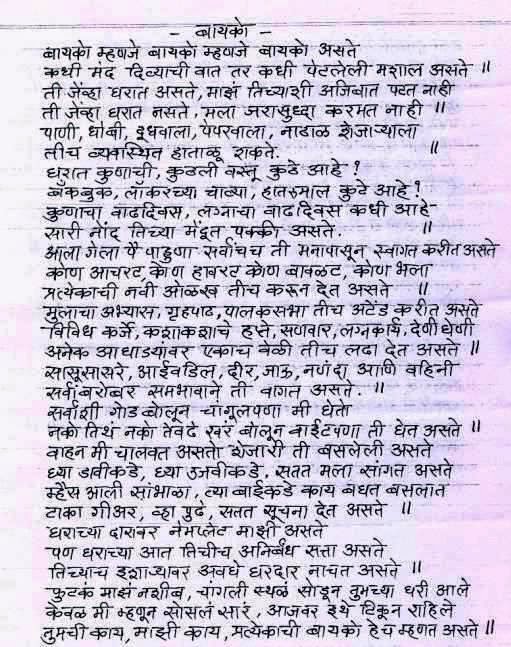 - बायको -
बायको म्हणजे बायको म्हणजे बायको असते
कधी मंद दिव्याची वात तर कधी पेटलेली मशाल असते ॥
ती जेंव्हा घरात असते, माझं तिच्याशी अजिबात पटत नाही
ती जेंव्हा घरात नसते, मला जरासुध्दा करमत नाही ॥
पाणी, धोबी, दूधवाला, पेपरवाला, नाठाळ शेजाऱ्याला
तीच व्यवस्थित हाताळू शकते. ॥
घरात कुणाची, कुठली वस्तू कुठे आहे ?
बँकबुक, लॉकरच्या चाव्या, हातरुमाल कुठे आहे?
कुणाचा वाढदिवस, लग्नाचा वाढदिवस कधी आहे
सारी नोंद तिच्या मेंदूत पक्की असते. ॥
आला गेला पै पाहुणा सर्वांचच ती मनापासून स्वागत करीत असते
कोण आचरट, कोण हावरट कोण बावळट, कोण भला
प्रत्येकाची नवी ओळख तीच करून देत असते ॥
मुलांचा अभ्यास, गृहपाठ, पालकसभा तीच अटेंड करीत असते
विविध कर्जे, कशाकशाचे हप्ते, सणवार, लग्नकार्य, देणी घेणी
अनेक आघाड्यांवर एकाच वेळी तीच लढा देत असते ॥
सासूसासरे, आईवडिल, दीर, जाऊ, नणंदा आणि वहिनी
सर्वांबरोबर समभावाने ती वागत असते. ॥
सर्वाशी गोड बोलून चांगूलपणा मी घेतो
नको तिथं नको तेवढे खरं बोलून वाईटपणा ती घेत असते ॥
वाहन मी चालवत असतो शेजारी ती बसलेली असते
घ्या डावीकडे, घ्या उजवीकडे, सतत मला सांगत असते
म्हैस आली सांभाळा, त्या बाईकडे काय बघत बसलात
टाका गीअर, व्हा पुढे, सतत सूचना देत असते ॥
घराच्या दारावर नेमप्लेट माझी असते
पण घराच्या आत तिचीच अनिर्बंध सत्ता असते
तिच्याच इशाऱ्यावर अवघे घरदार नाचत असते ॥
फुटकं माझं नशीब, चांगली स्थळं सोडून तुमच्या घरी आले
केवळ मी म्हणून सोसलं सारं, आजवर इथे टिकून राहिले
तुमची काय, माझी काय, प्रत्येकाची बायको हेच म्हणत असते ॥